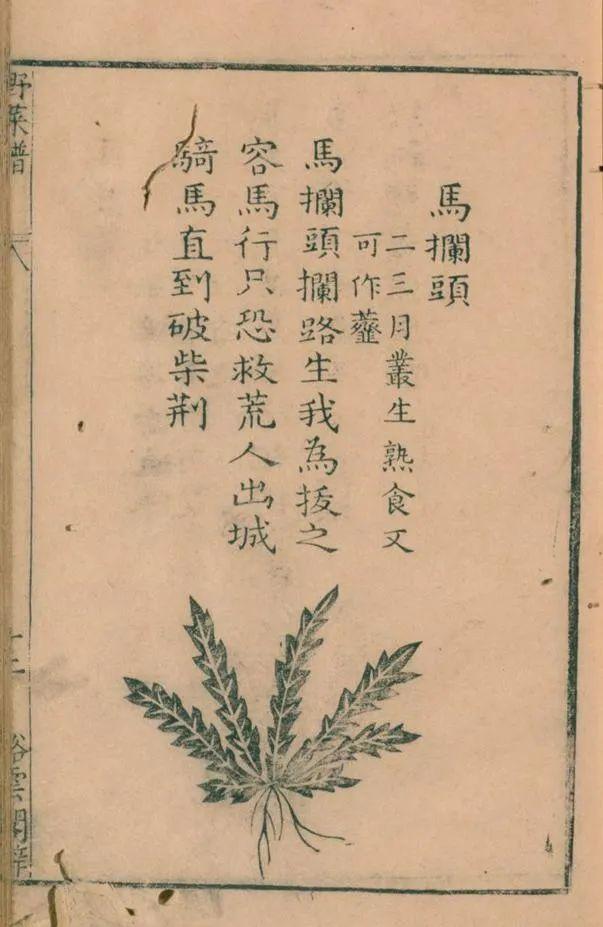 馬攔頭
二三月叢生熟食又
可作虀
馬攔頭攔路生我為拔之
容馬行只恐救荒人出城
騎馬直到破柴荊
野菜譜